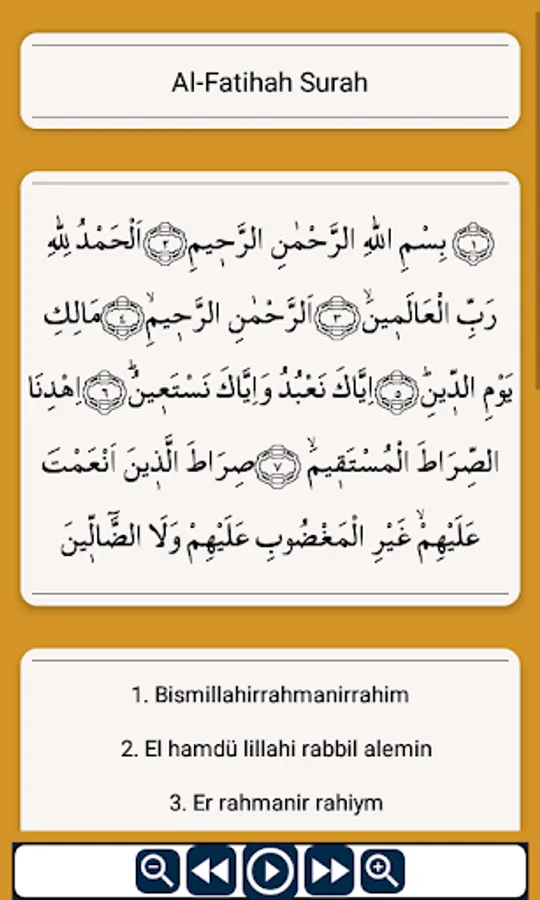 Al-Fatihah Surah
﴿١﴾ بِسْمِ اللّٰهِ الرَّحْمٰنِ الرَّح۪يمِ ﴿٢﴾ اَلْحَمْدُ لِلّٰهِ
رَبِّ الْعَالَم۪ينَۙ ﴿٣﴾ اَلرَّحْمٰنِ الرَّح۪يمِۙ ﴿٤﴾ مَالِكِ
يَوْمِ الدّ۪ينِۜ ﴿٥﴾ اِيَّاكَ نَعْبُدُ وَاِيَّاكَ نَسْتَع۪ينُۜ ﴿٦﴾ اِهْدِنَا
الصِّرَاطَ الْمُسْتَق۪يمَۙ ﴿٧﴾ صِرَاطَ الَّذ۪ينَ اَنْعَمْتَ
عَلَيْهِمْۙ غَيْرِ الْمَغْضُوبِ عَلَيْهِمْ وَلَا الضَّٓالّ۪ينَ
1. Bismillahirrahmanirrahim
2. El hamdü lillahi rabbil alemin
3. Er rahmanir rahiym